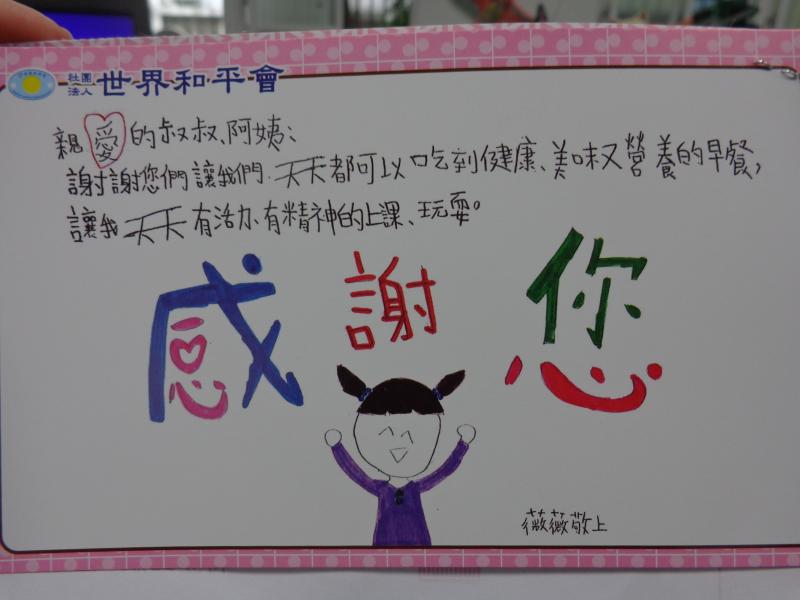 社團法人 世界和平會
親愛的叔叔、阿姨：
謝謝您們讓我們天天都可以吃到健康、美味又營養的早餐，
讓我天天有活力、有精神的上課、玩耍。
感謝您
薇薇敬上